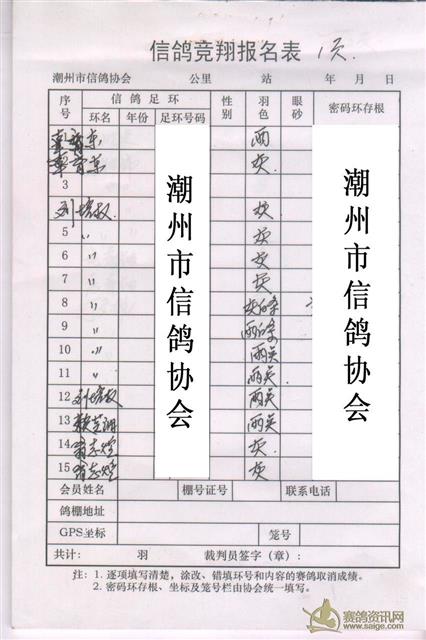 信鸽竞翔报名表 1页.
潮州市信鸽协会 公里 站 年 月 日
序号 信鸽足环 性别 羽色 眼砂 密码环存根
环名 年份 足环号码
雨
灰
3
灰
5 〃 灰
6 〃 灰
7 〃 灰
8 〃 灰白条
9 〃 雨白条
10 〃 雨吴
11 〃 雨吴
12 雨吴
13 雨吴
14 灰
15 灰
潮州市信鸽协会
潮州市信鸽协会
会员姓名 棚号证号 联系电话
鸽棚地址
GPS坐标 笼号
共计: 羽 裁判员签字(章):
注:1. 逐项填写清楚,涂改、错填环号和内容的赛鸽取消成绩。
2. 密码环存根、坐标及笼号栏由协会统一填写。
赛鸽资讯网
www.saige.com